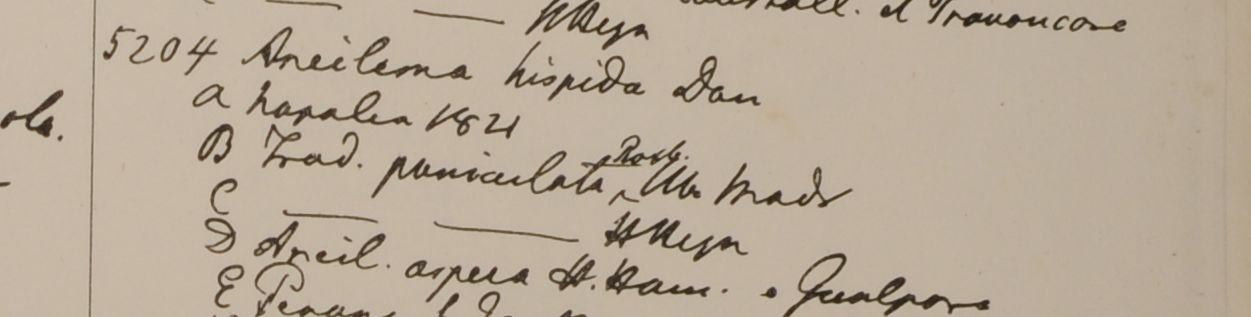 HHeyn
. et Travancore
5204 Aneilema hispida Don
a Napalia 1821
B Trad. paniculata Roxb. Hb. Madr
ola.
C — — HHeyn
D Aneil. aspera H. Ham. e Gualpara
E Penang